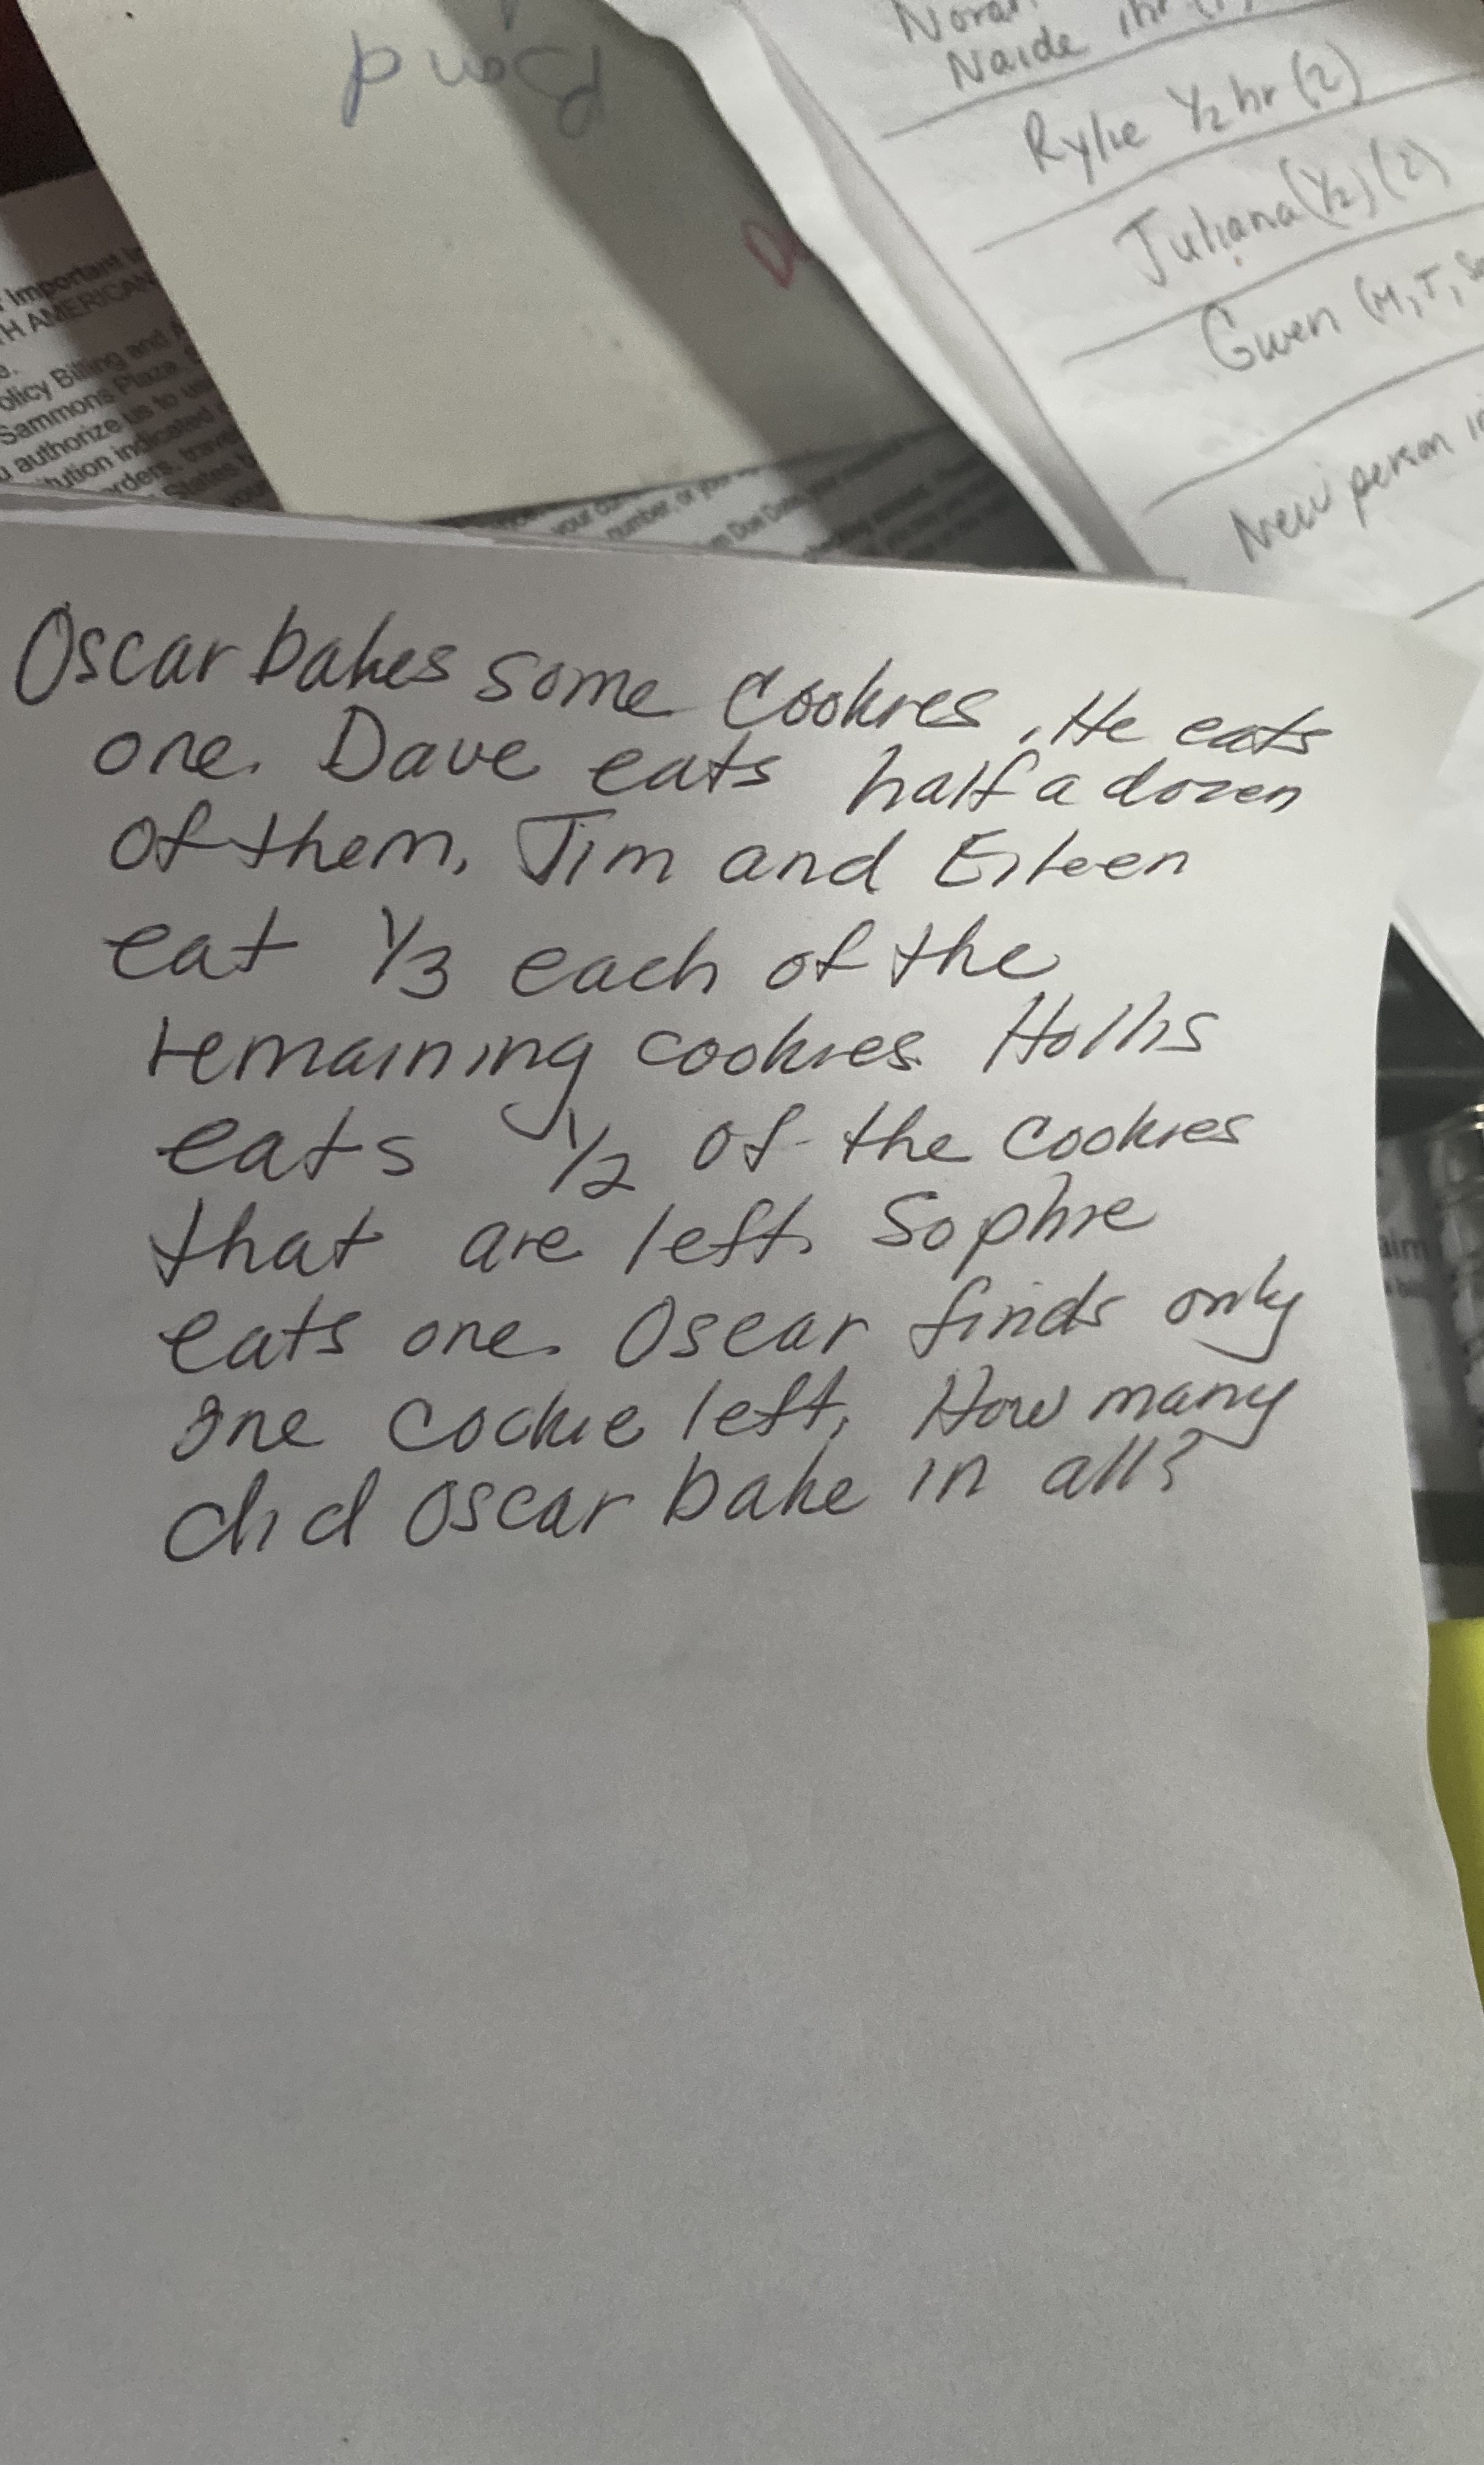 Band
Norah
Naide 1hr
Rylie ½ hr (2)
Juliana (½) (2)
Gwen (M, T, S
New person
Important
H AMERICAN
olicy Billing and
Sammons Plaza,
authorize us to
ution indicated
orders, travel
States
your
number, or your
Due Date
Oscar bakes some cookies. He eats
one. Dave eats half a dozen
of them. Jim and Eileen
eat ⅓ each of the
remaining cookies. Hollis
eats ½ of the cookies
that are left. Sophie
eats one. Oscar finds only
one cookie left. How many
did Oscar bake in all?